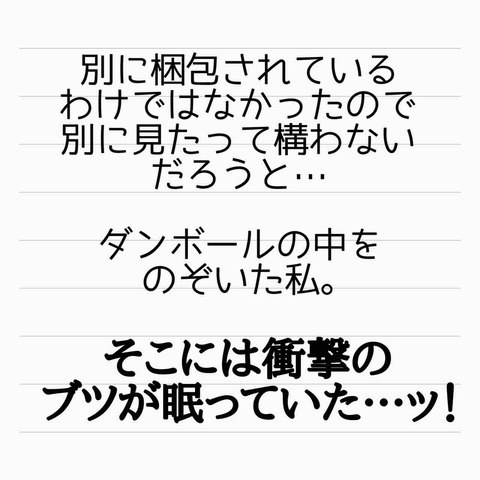 別に梱包されている
わけではなかったので
別に見たって構わない
だろうと…
ダンボールの中を
のぞいた私。
そこには衝撃の
ブツが眠っていた…ッ!